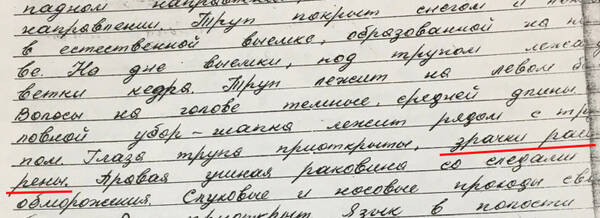 падном направлении,
направлении. Труп покрыт снегом и
в естественной выемке, образованной на
ве. На дне выемки, под трупом лежа
ветки кедра. Труп лежит на левом
Волосы на голове темные, средней длины.
ловной убор – шапка лежит рядом с тру
пом. Глаза трупа приоткрыты, зрачки рас
рены. Правая ушная раковина со следами
обморожения. Слуховые и носовые проходы
приоткрыт. Язык в полости